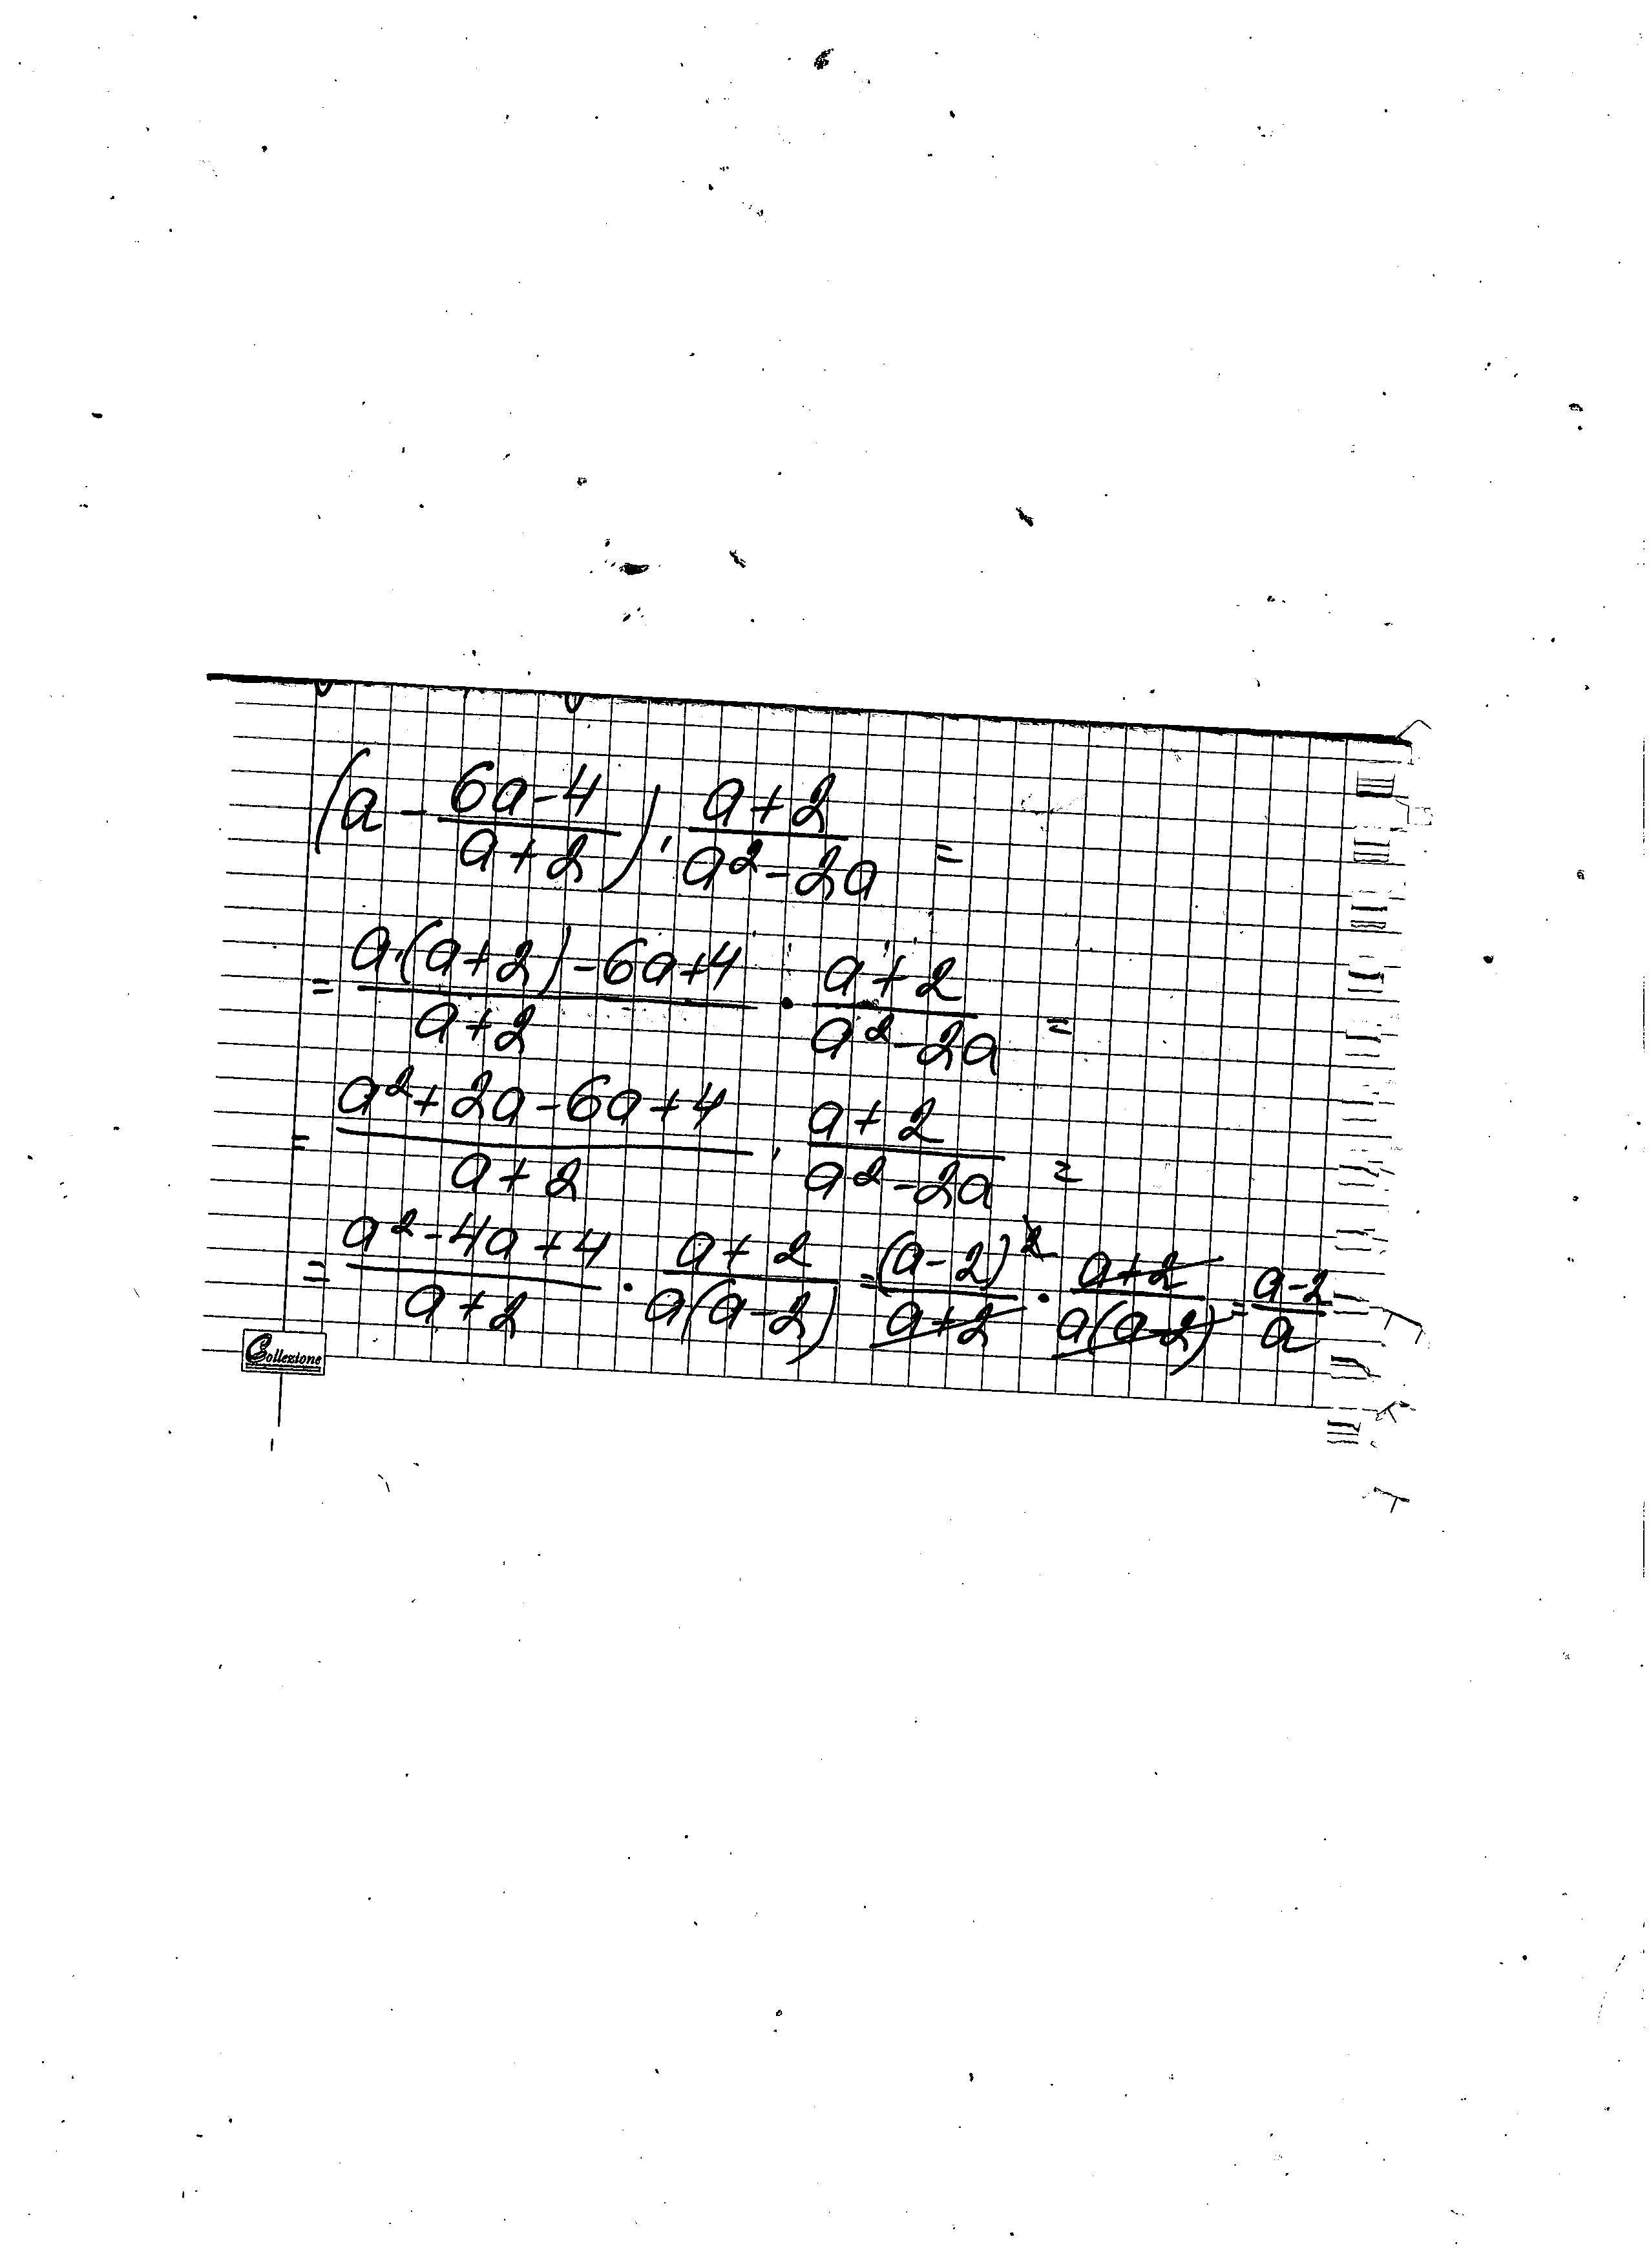 (a - \frac{6a-4}{a+2}) \cdot \frac{a+2}{a²-2a} =
= \frac{a·(a+2)-6a+4}{a+2} \cdot \frac{a+2}{a²-2a} =
= \frac{a²+2a-6a+4}{a+2} \cdot \frac{a+2}{a²-2a} =
= \frac{a²-4a+4}{a+2} \cdot \frac{a+2}{a(a-2)} = \frac{(a-2)²}{a+2} \cdot \frac{a+2}{a(a-2)} = \frac{a-2}{a}
Collezione